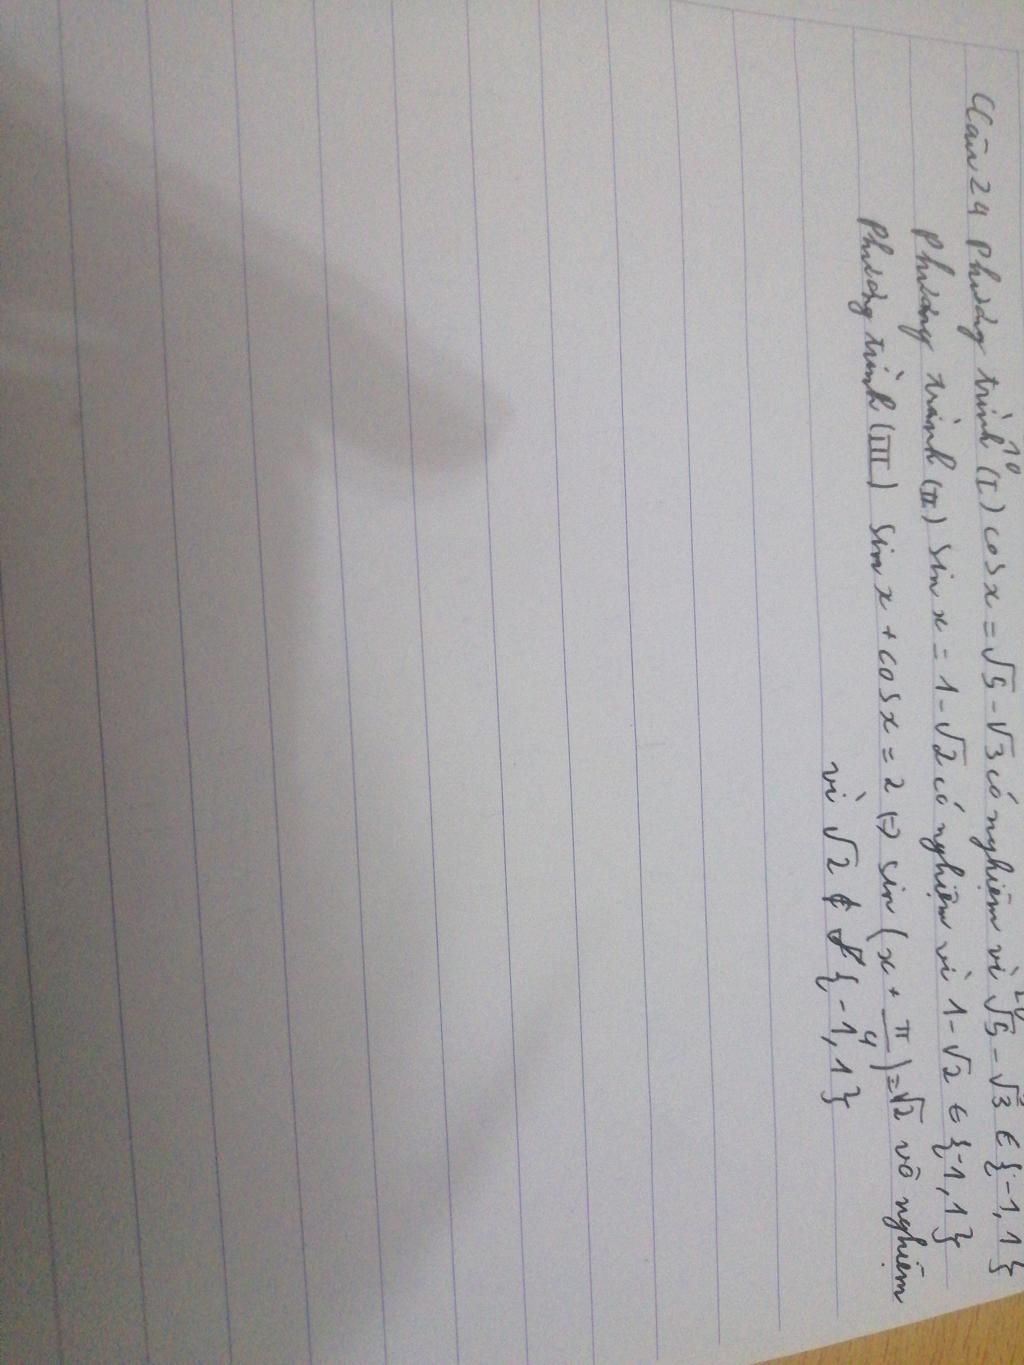 Câu 24 Phương trình (I) cos x = √5 - √3 có nghiệm vì √5 - √3 ∈ {-1, 1}
Phương trình (II) sin x = 1 - √2 có nghiệm vì 1 - √2 ∈ {-1, 1}
Phương trình (III) sin x + cos x = 2 (=) sin (x + π/4) = √2 vô nghiệm
vì √2 ∉ {-1, 1}